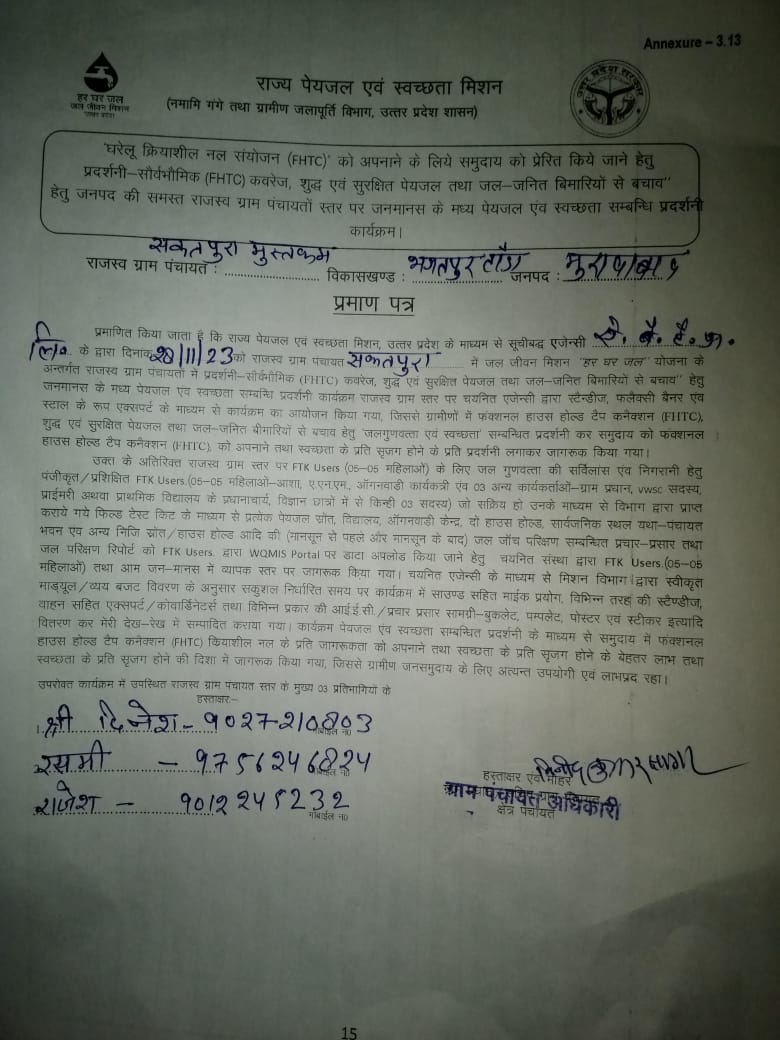 Annexure – 3.13
हर घर जल
जल जीवन मिशन
उत्तर प्रदेश
राज्य पेयजल एवं स्वच्छता मिशन
(नमामि गंगे तथा ग्रामीण जलापूर्ति विभाग, उत्तर प्रदेश शासन)
उत्तर प्रदेश सरकार
'घरेलू क्रियाशील नल संयोजन (FHTC)' को अपनाने के लिये समुदाय को प्रेरित किये जाने हेतु
प्रदर्शनी–सौर्वभौमिक (FHTC) कवरेज, शुद्ध एवं सुरक्षित पेयजल तथा जल–जनित बिमारियों से बचाव"
हेतु जनपद की समस्त राजस्व ग्राम पंचायतों स्तर पर जनमानस के मध्य पेयजल एंव स्वच्छता सम्बन्धि प्रदर्शनी
कार्यक्रम।
राजस्व ग्राम पंचायत : सकतपुरा मुस्तकम विकासखण्ड : भगतपुर टाँडा जनपद : मुरादाबाद
प्रमाण पत्र
प्रमाणित किया जाता है कि राज्य पेयजल एवं स्वच्छता मिशन, उत्तर प्रदेश के माध्यम से सूचीबद्ध एजेन्सी
लि० के द्वारा दिनांक 20/11/23 को राजस्व ग्राम पंचायत सकतपुरा में जल जीवन मिशन "हर घर जल" योजना के
अन्तर्गत राजस्व ग्राम पंचायतों में प्रदर्शनी–सौर्वभौमिक (FHTC) कवरेज, शुद्ध एवं सुरक्षित पेयजल तथा जल–जनित बिमारियों से बचाव" हेतु
जनमानस के मध्य पेयजल एंव स्वच्छता सम्बन्धि प्रदर्शनी कार्यक्रम राजस्व ग्राम स्तर पर चयनित एजेन्सी द्वारा स्टेन्डीज, फलैक्सी बैनर एंव
स्टाल के रूप एक्सपर्ट के माध्यम से कार्यक्रम का आयोजन किया गया, जिससे ग्रामीणों में फंक्शनल हाउस होल्ड टैप कनैक्शन (FHTC),
शुद्ध एवं सुरक्षित पेयजल तथा जल–जनित बीमारियों से बचाव हेतु 'जलगुणवत्ता एवं स्वच्छता' सम्बन्धित प्रदर्शनी कर समुदाय को फंक्शनल
हाउस होल्ड टैप कनेक्शन (FHTC), को अपनाने तथा स्वच्छता के प्रति सृजग होने के प्रति प्रदर्शनी लगाकर जागरूक किया गया।
उक्त के अतिरिक्त राजस्व ग्राम स्तर पर FTK Users (05–05 महिलाओं) के लिए जल गुणवत्ता की सर्विलांस एंव निगरानी हेतु
पंजीकृत/प्रशिक्षित FTK Users.(05–05 महिलाओं–आशा, ए.एन.एम., ऑगनवाड़ी कार्यकत्री एंव 03 अन्य कार्यकर्ताओं–ग्राम प्रधान, vwsc सदस्य,
प्राईमरी अथवा प्राथमिक विद्यालय के प्रधानाचार्य, विज्ञान छात्रों में से किन्ही 03 सदस्य) जो सक्रिय हो उनके माध्यम से विभाग द्वारा प्राप्त
कराये गये फिल्ड टेस्ट किट के माध्यम से प्रत्येक पेयजल स्रोत, विद्यालय, ऑगनवाड़ी केन्द्र, दो हाउस होल्ड, सार्वजनिक स्थल यथा–पंचायत
भवन एंव अन्य निजि स्रोत/हाउस होल्ड आदि की (मानसून से पहले और मानसून के बाद) जल जाँच परिक्षण सम्बन्धित प्रचार–प्रसार तथा
जल परिक्षण रिपोर्ट को FTK Users. द्वारा WQMIS Portal पर डाटा अपलोड किया जाने हेतु चयनित संस्था द्वारा FTK Users.(05–05
महिलाओं) तथा आम जन–मानस में व्यापक स्तर पर जागरूक किया गया। चयनित एजेन्सी के माध्यम से मिशन विभाग द्वारा स्वीकृत
माड्यूल/व्यय बजट विवरण के अनुसार सकुशल निर्धारित समय पर कार्यक्रम में साउण्ड सहित माईक प्रयोग, विभिन्न तरह की स्टैण्डीज,
वाहन सहित एक्सपर्ट/कोवार्डिनेटर्स तथा विभिन्न प्रकार की आई.ई.सी./प्रचार प्रसार सामग्री–बुकलेट, पम्पलेट, पोस्टर एवं स्टीकर इत्यादि
वितरण कर मेरी देख–रेख में सम्पादित कराया गया। कार्यक्रम पेयजल एंव स्वच्छता सम्बन्धित प्रदर्शनी के माध्यम से समुदाय में फंक्शनल
हाउस होल्ड टैप कनेक्शन (FHTC) कियाशील नल के प्रति जागरूकता को अपनाने तथा स्वच्छता के प्रति सृजग होने के बेहतर लाभ तथा
स्वच्छता के प्रति सृजग होने की दिशा में जागरूक किया गया, जिससे ग्रामीण जनसमुदाय के लिए अत्यन्त उपयोगी एवं लाभप्रद रहा।
उपरोक्त कार्यक्रम में उपस्थित राजस्व ग्राम पंचायत स्तर के मुख्य 03 प्रतिभागियों के
हस्ताक्षरः–
श्री दिनेश – 9027-210803
मोबाईल न0
रसमी – 9756246824
मोबाईल न0
राजेश – 9012245232
मोबाईल न0
विनोद कुमार सागर
हस्ताक्षर एवं मोहर
ग्राम पंचायत अधिकारी
क्षेत्र पंचायत
15